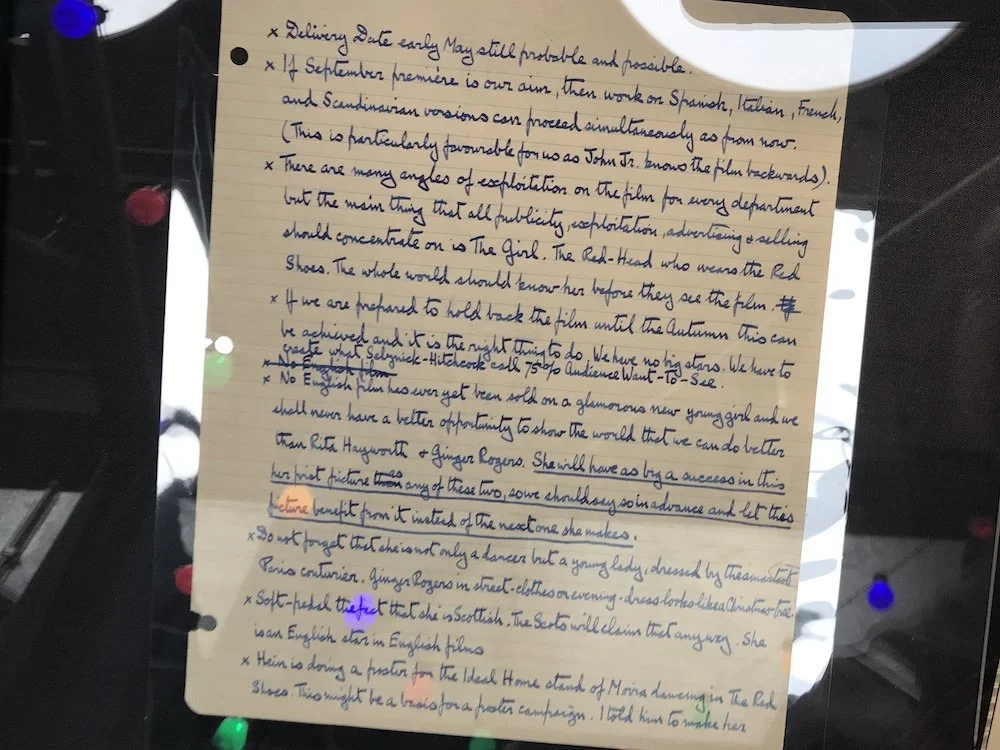 x Delivery Date early May still probable and possible.
x If September première is our aim, then work on Spanish, Italian, French,
and Scandinavian versions can proceed simultaneously as from now.
(This is particularly favourable for us as John Jr. knows the film backwards).
x There are many angles of exploitation on the film for every department
but the main thing that all publicity, exploitation, advertising & selling
should concentrate on is The Girl. The Red-Head who wears the Red
Shoes. The whole world should know her before they see the film.
x If we are prepared to hold back the film until the Autumn this can
be achieved and it is the right thing to do. We have no big stars. We have to
create what Selznick-Hitchcock call 75% Audience Want-To-See.
x No English film
x No English film has ever yet been sold on a glamorous new young girl and we
shall never have a better opportunity to show the world that we can do better
than Rita Hayworth & Ginger Rogers. She will have as big a success in this
her first picture than as any of these two, so we should say so in advance and let this
picture benefit from it instead of the next one she makes.
x Do not forget that she is not only a dancer but a young lady, dressed by the smartest
Paris couturier. Ginger Rogers in street-clothes or evening-dress looks like a Christmas-tree.
x Soft-pedal the fact that she is Scottish. The Scots will claim that anyway. She
is an English star in English films
x Hein is doing a poster for the Ideal Home stand of Moira dancing in The Red
Shoes. This might be a basis for a poster campaign. I told him to make her